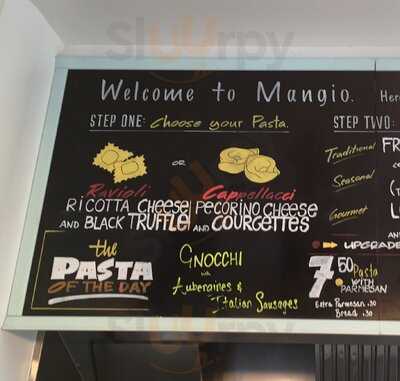 Sluurpy
Welcome to Mangio.
Her
STEP ONE: Choose your Pasta.
STEP TWO:
Ravioli
OR
Cappellacci
RICOTTA CHEESE
AND BLACK TRUFFLE
PECORINO CHEESE
AND COURGETTES
Traditional
FR
Seasonal
Gourmet
AN
UPGRADE
the
PASTA
OF THE DAY
GNOCCHI
with
Aubergines &
Italian Sausages
7.50 Pasta
WITH
PARMESAN
Extra Parmesan .30
Bread .30